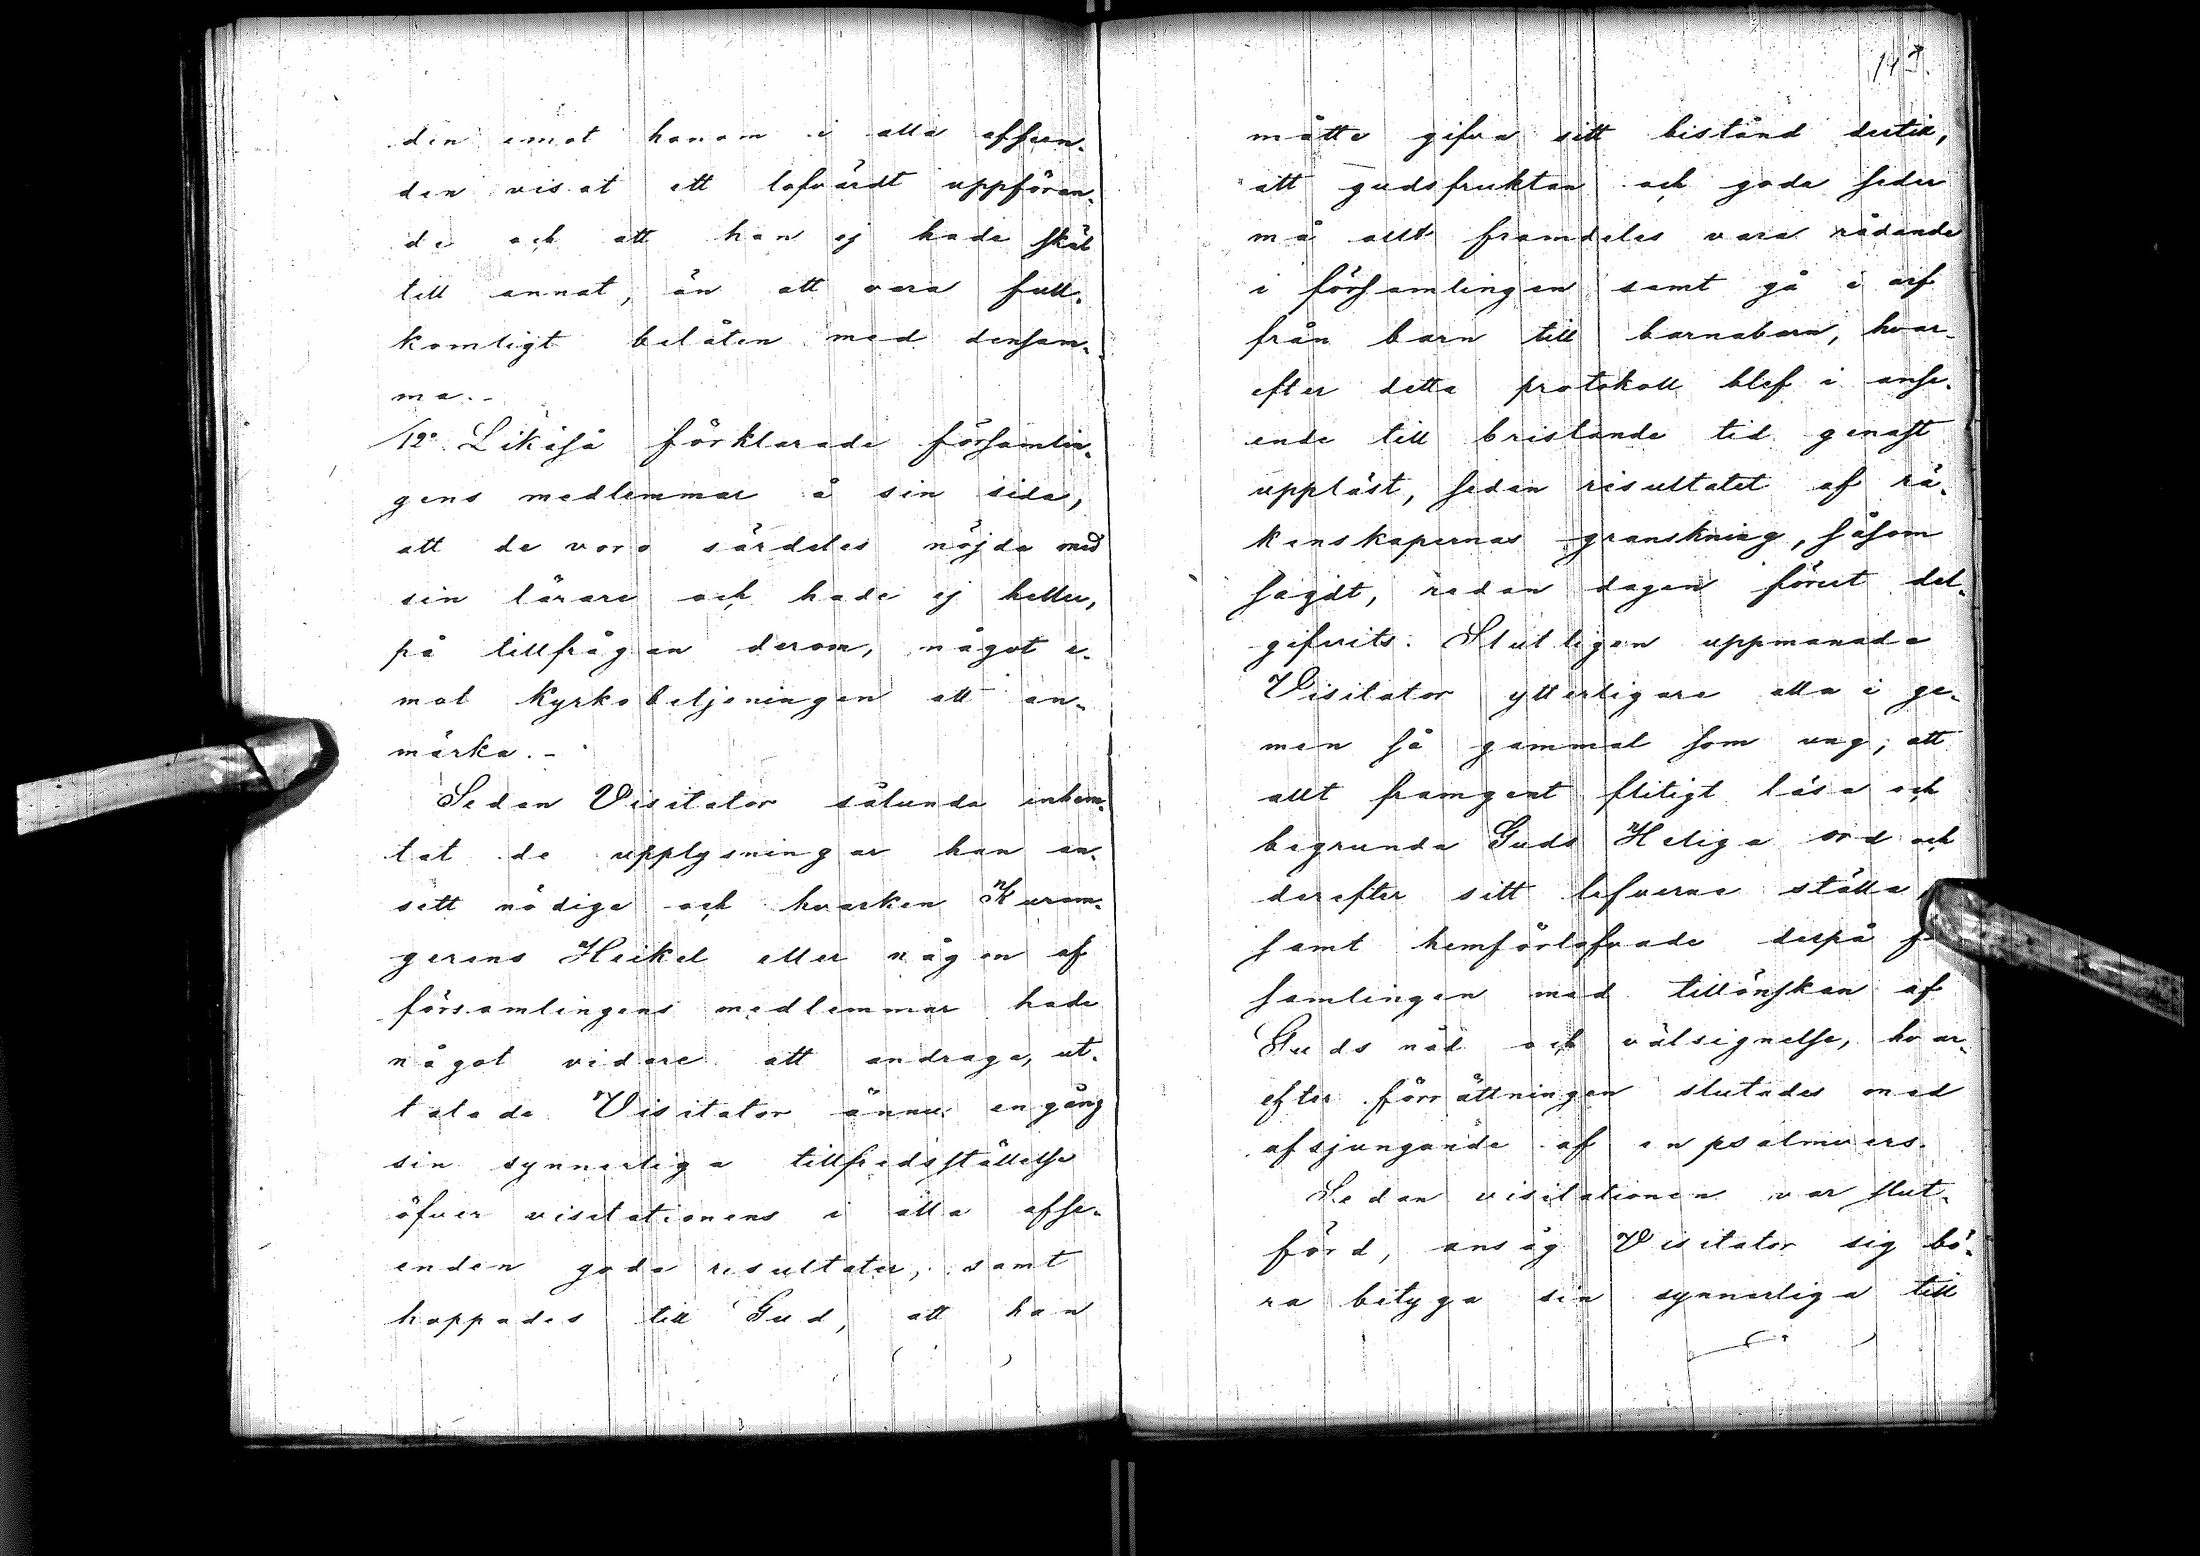 den emot honom i alla afseen-
den visat ett lofvärdt uppföran-
de och att han ej hade skäl
till annat, än att vara full-
komligt belåten med densam-
ma. -
12° Likaså förklarade församlin-
gens medlemmar å sin sida,
att de voro särdeles nöjda med
sin lärare och hade ej heller,
på tillfrågan derom, något e-
mot Kyrkobetjeningen att an-
märka. -
Sedan Visitator sålunda inhem-
tat de upplysningar han an-
sett nödiga och hvarken Kuram-
gerens Heikel eller någon af
församlingens medlemmar hade
något vidare att andraga, ut-
talade Visitator ännu engång
sin synnerliga tillfredsställelse
öfver visitationens i alla afse-
enden goda resultater, samt
hoppades till Gud, att han
143.
måtte gifva sitt bistånd dertill,
att gudsfruktan och goda seder
må allt framdeles vara rådande
i församlingen samt gå i arf
från barn till barnabarn, hvar-
efter detta protokoll blef i anse-
ende till bristande tid genast
uppläst, sedan resultatet af rä-
kenskapernas granskning, såsom
sagdt, redan dagen förut del-
gifvits. Slutligen uppmanade
Visitator ytterligare alla i ge-
men så gammal som ung, att
allt framgent flitigt läsa och
begrunda Guds Heliga ord och
derefter sitt lefverne ställa,
samt hemförlofvade derpå
samlingen med tillönskan af
Guds nåd och välsignelse, hvar-
efter förrättningen slutades med
afsjungande af en psalmvers.
Sedan visitationen var slut-
förd, ansåg Visitator sig bö-
ra betyga sin synnerliga till